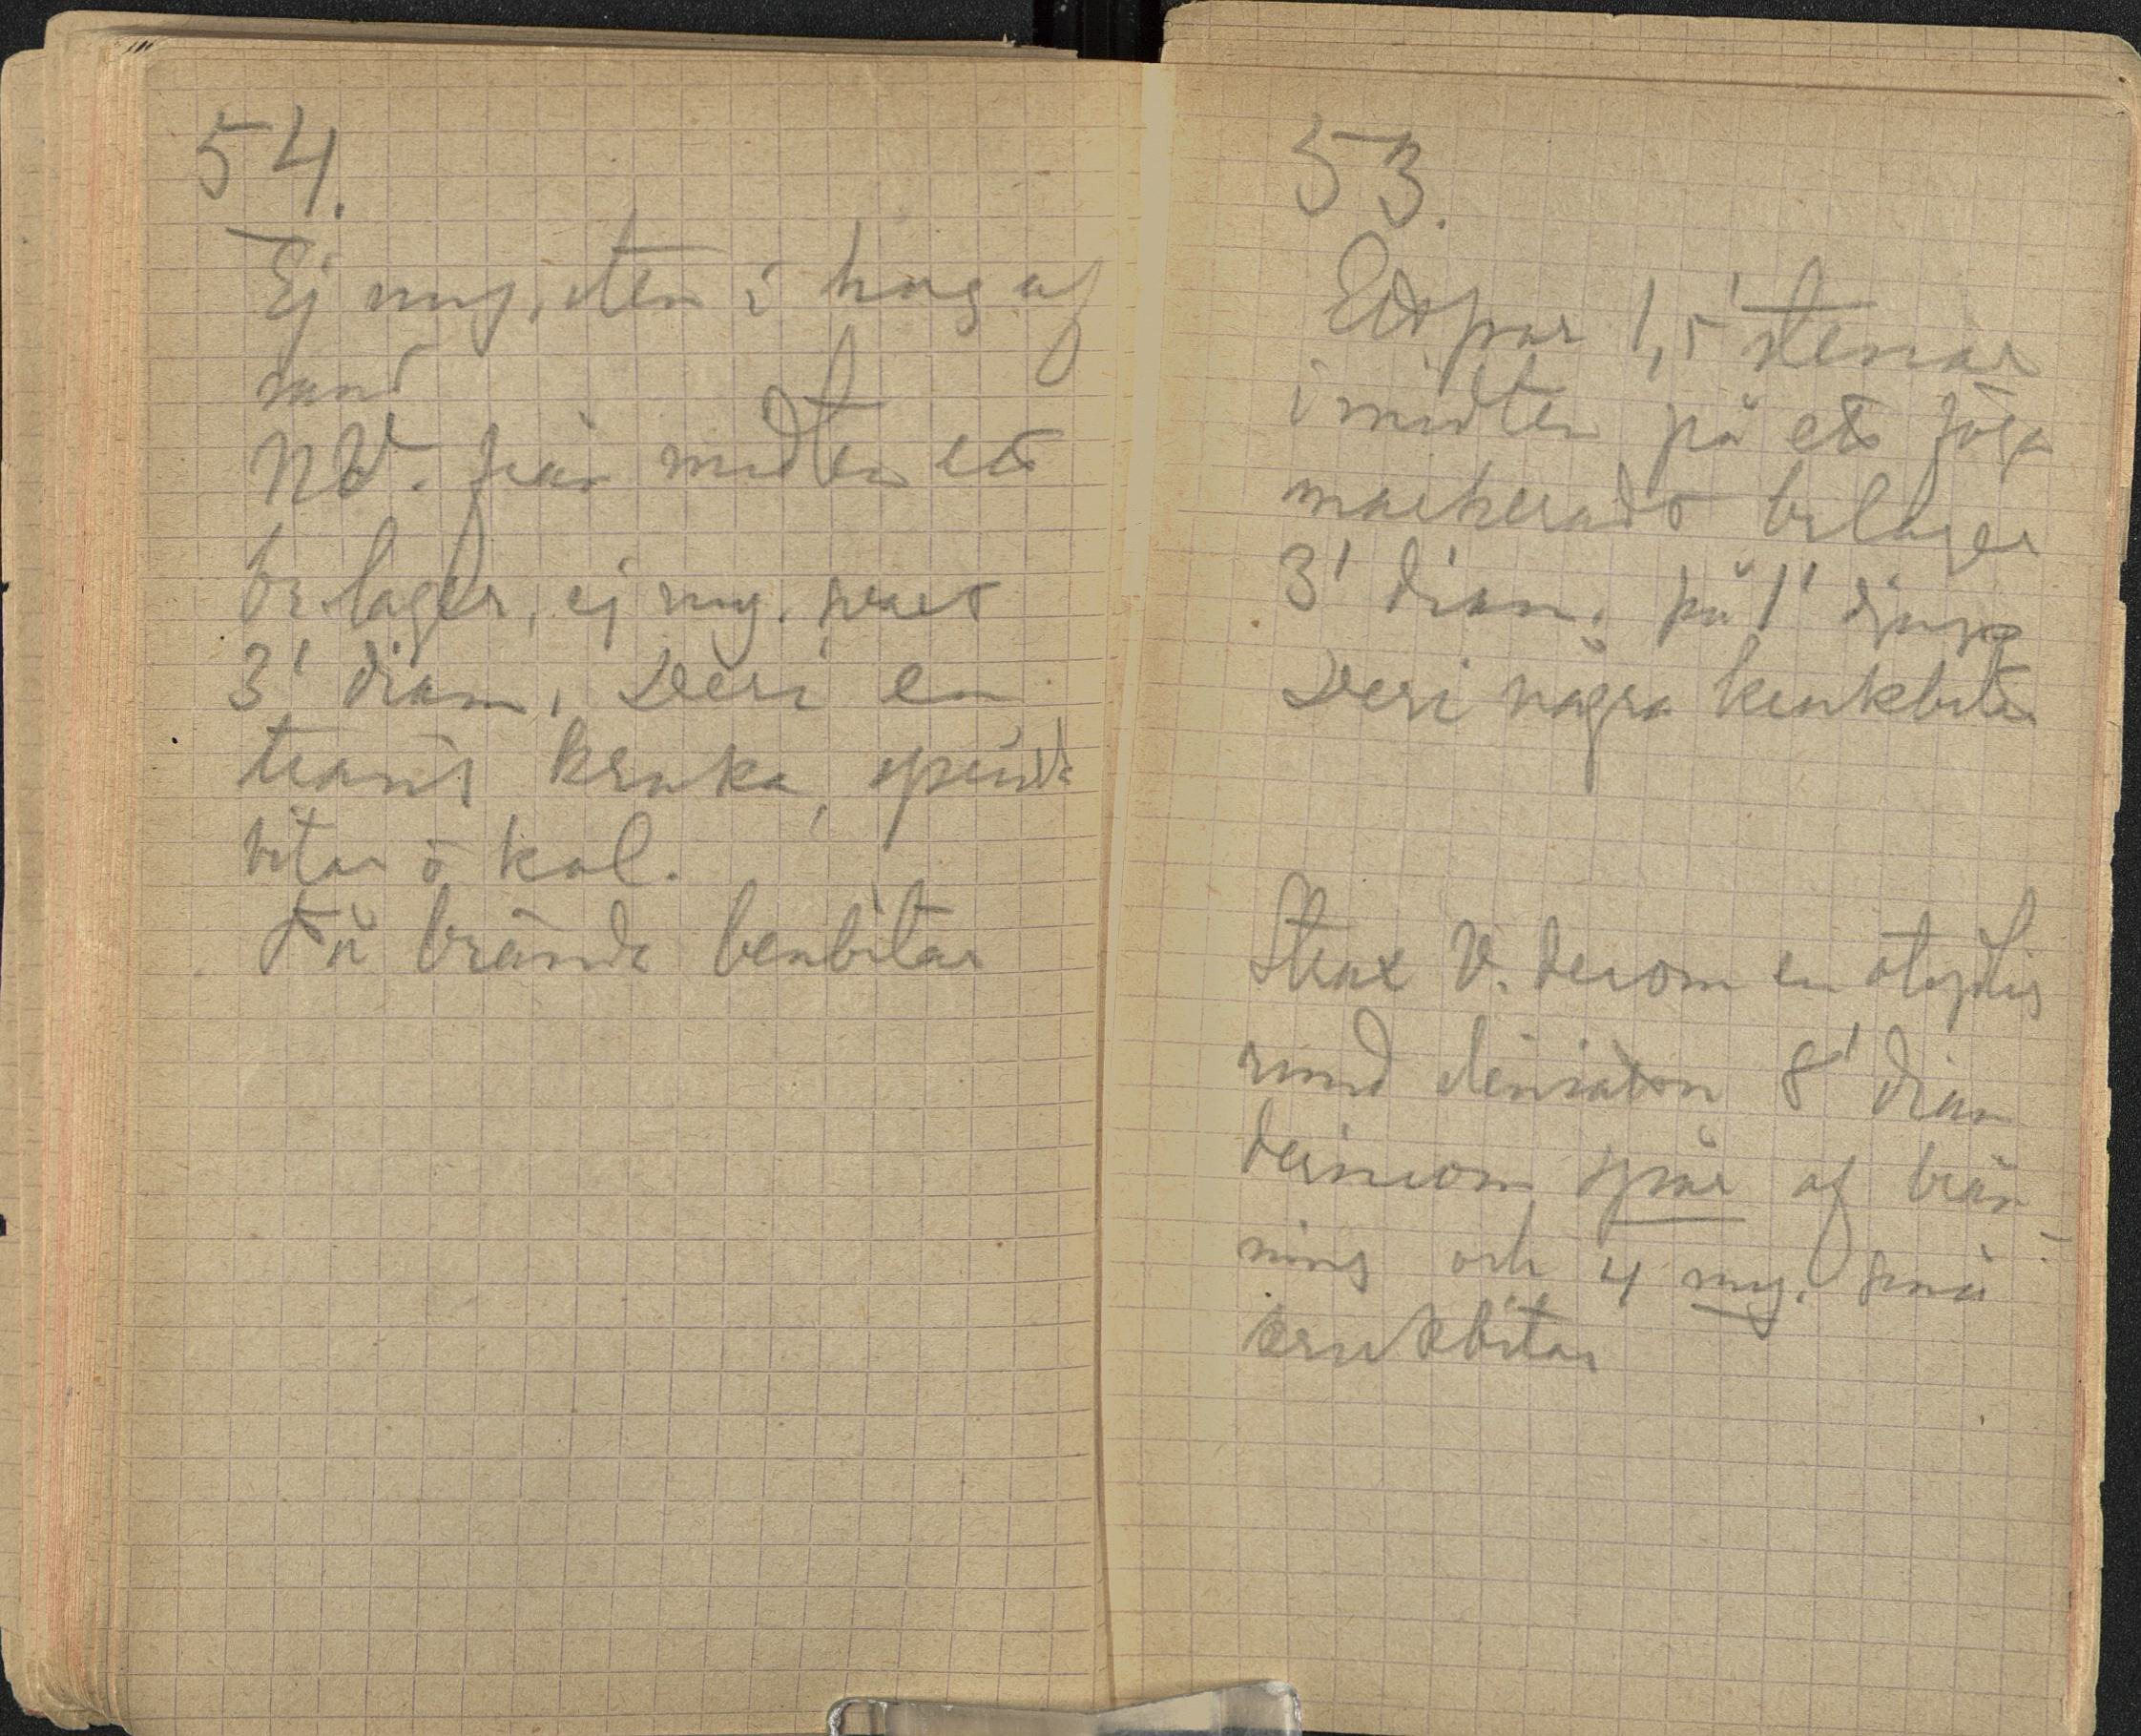 54.
Ej myc. sten i hög af
sand
NV. från midten ett
br lager, ej myc. svart
3' diam, Deri en
trasig kruka, spridda
bitar o kol.
Få brända benbitar
53.
Ett par 1,5' stenar
i midten på ett föga
markeradt brlager
3' diam. på 1' djup
Deri några krukbitar
Strax V. derom en otydlig
rund stensättn 8' diam
derinom spår af brän-
ning och 4 myc. små
krukbitar